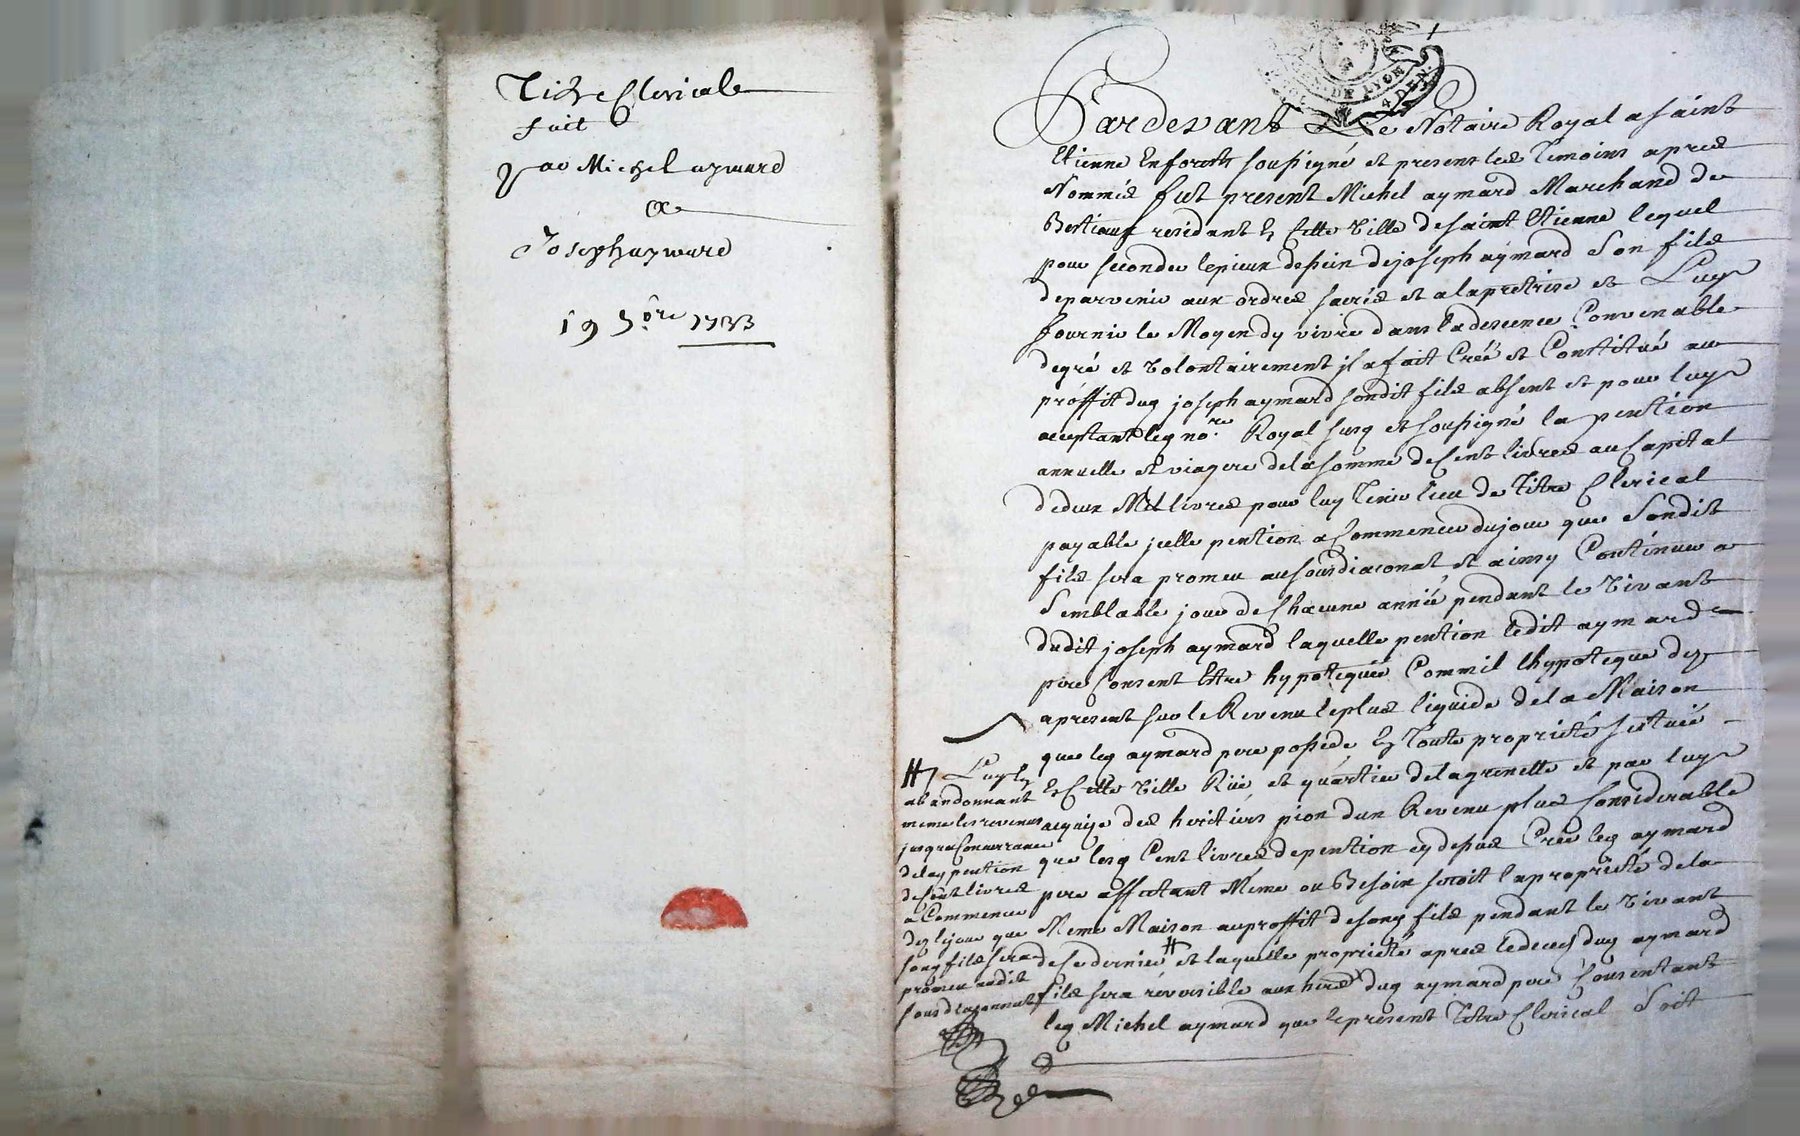 Titre Clerical
fait
par Michel aymard
a
Joseph aymard
19 1733
DE LYON
4 DEN.
Pardevant Le Notaire Royal a saint
Etienne En forests soussigné et present les Temoins apres
Nommés fut present Michel aymard Marchand de
Bestiaux residant En Cette Ville de saint Etienne lequel
pour seconder le pieux dessein de joseph aymard son fils
deparvenir aux ordres sacrés et a la pretrise et Luy
fournir le Moyen dy vivre dans la descence Convenable
de gré et Volontairement jl a fait Créé et Constitué au
proffit dud joseph aymard sondit fils absent et pour luy
acceptant led no.re Royal susd et soussigné la pention
annuelle et viagere de la somme de Cent livres au Capital
de deux Mil livres pour luy Tenir lieu de Titre Clerical
payable jcelle pention a Commencer du jour que sondit
fils sera promeu au sousdiaconat et ainsy Continuer a
semblable jour de Chacune année pendant le Vivant
dudit joseph aymard laquelle pention ledit aymard
pere Consent Etre hypotequée Comm il lhypoteque dez
apresent sur le Revenu le plus liquide de la Maison
que led aymard pere possede En Toute proprieté scituée
En Cette Ville Rüe et quartier de la grenette et par luy
acquise des heritiers pion dun Revenu plus Considerable
que lesd Cent livres de pention cy depus Créé led aymard
pere affectant Même ou Besoin seroit la proprieté de la
Meme Maison au proffit de sond fils pendant le Vivant
de ce dernier # et laquelle proprieté apres le deces dud aymard
fils sera reversible aux hers dud aymard pere Consentant
led Michel aymard que le present Titre Clerical soit
# Luy En
abandonnant
meme les revenus
jusqua Concurrance
de lad pention
de Cent livres
a Commencer
dez le jour que
sond fils sera
promeu audit
sousdiaconnat